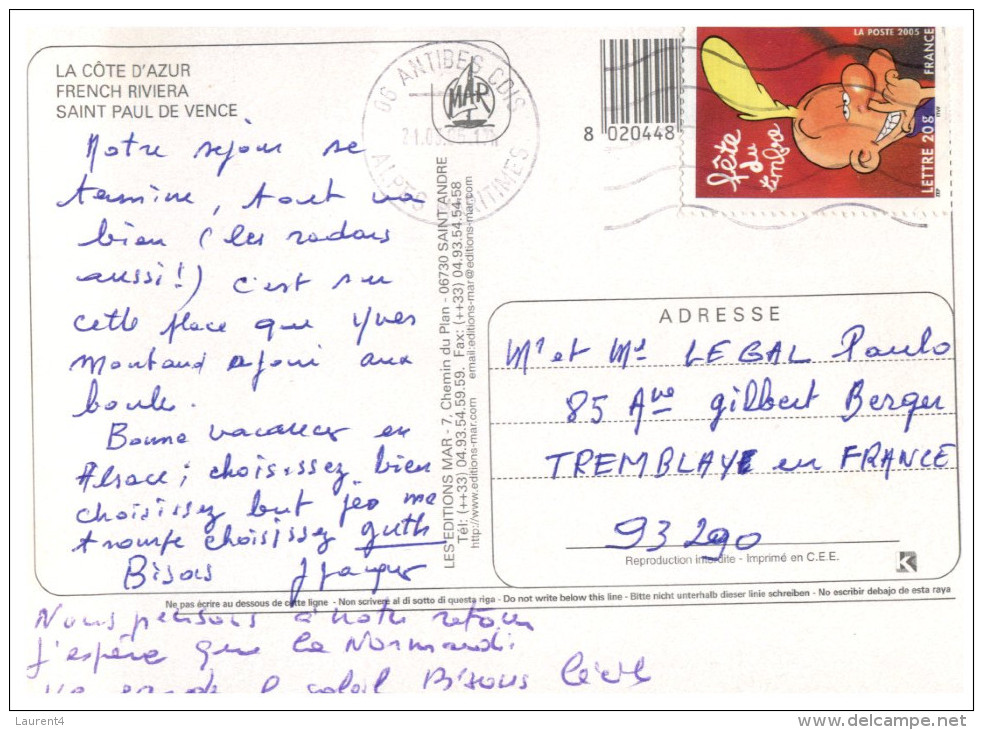 LA CÔTE D'AZUR
FRENCH RIVIERA
SAINT PAUL DE VENCE
Notre sejour se
termine, tout va
bien (les radars
aussi!) c'est sur
cette place que Yves
Montand a joui aux
boules.
Bonne vacances en
Alsace; choisissez bien
choisissez but
trompe choisissez guth
Bisous
Nous pensons à notre retour
J'espère que la Normandi
soleil Bisous
Ne pas écrire au dessous de cette ligne - Non scrivere al di sotto di questa riga - Do not write below this line - Bitte nicht unterhalb dieser linie schreiben - No escribir debajo de esta raya
LES EDITIONS MAR - 7, Chemin du Plan - 06730 SAINT ANDRE
Tél: (++33) 04.93.54.59.59. Fax: (++33) 04.93.54.54.58
http://www.editions-mar.com email:editions-mar@editions-mar.com
MAR
06 ANTIBES CDIS
ALPES MARITIMES
8 020448
LA POSTE 2005
FRANCE
LETTRE 20g
fête
du
timbre
ADRESSE
Mr et Me LEGAL Paulo
85 Ave gilbert Berger
TREMBLAY en FRANCE
93290
Reproduction interdite - Imprimé en C.E.E.
K
Laurent4
www.delcampe.net